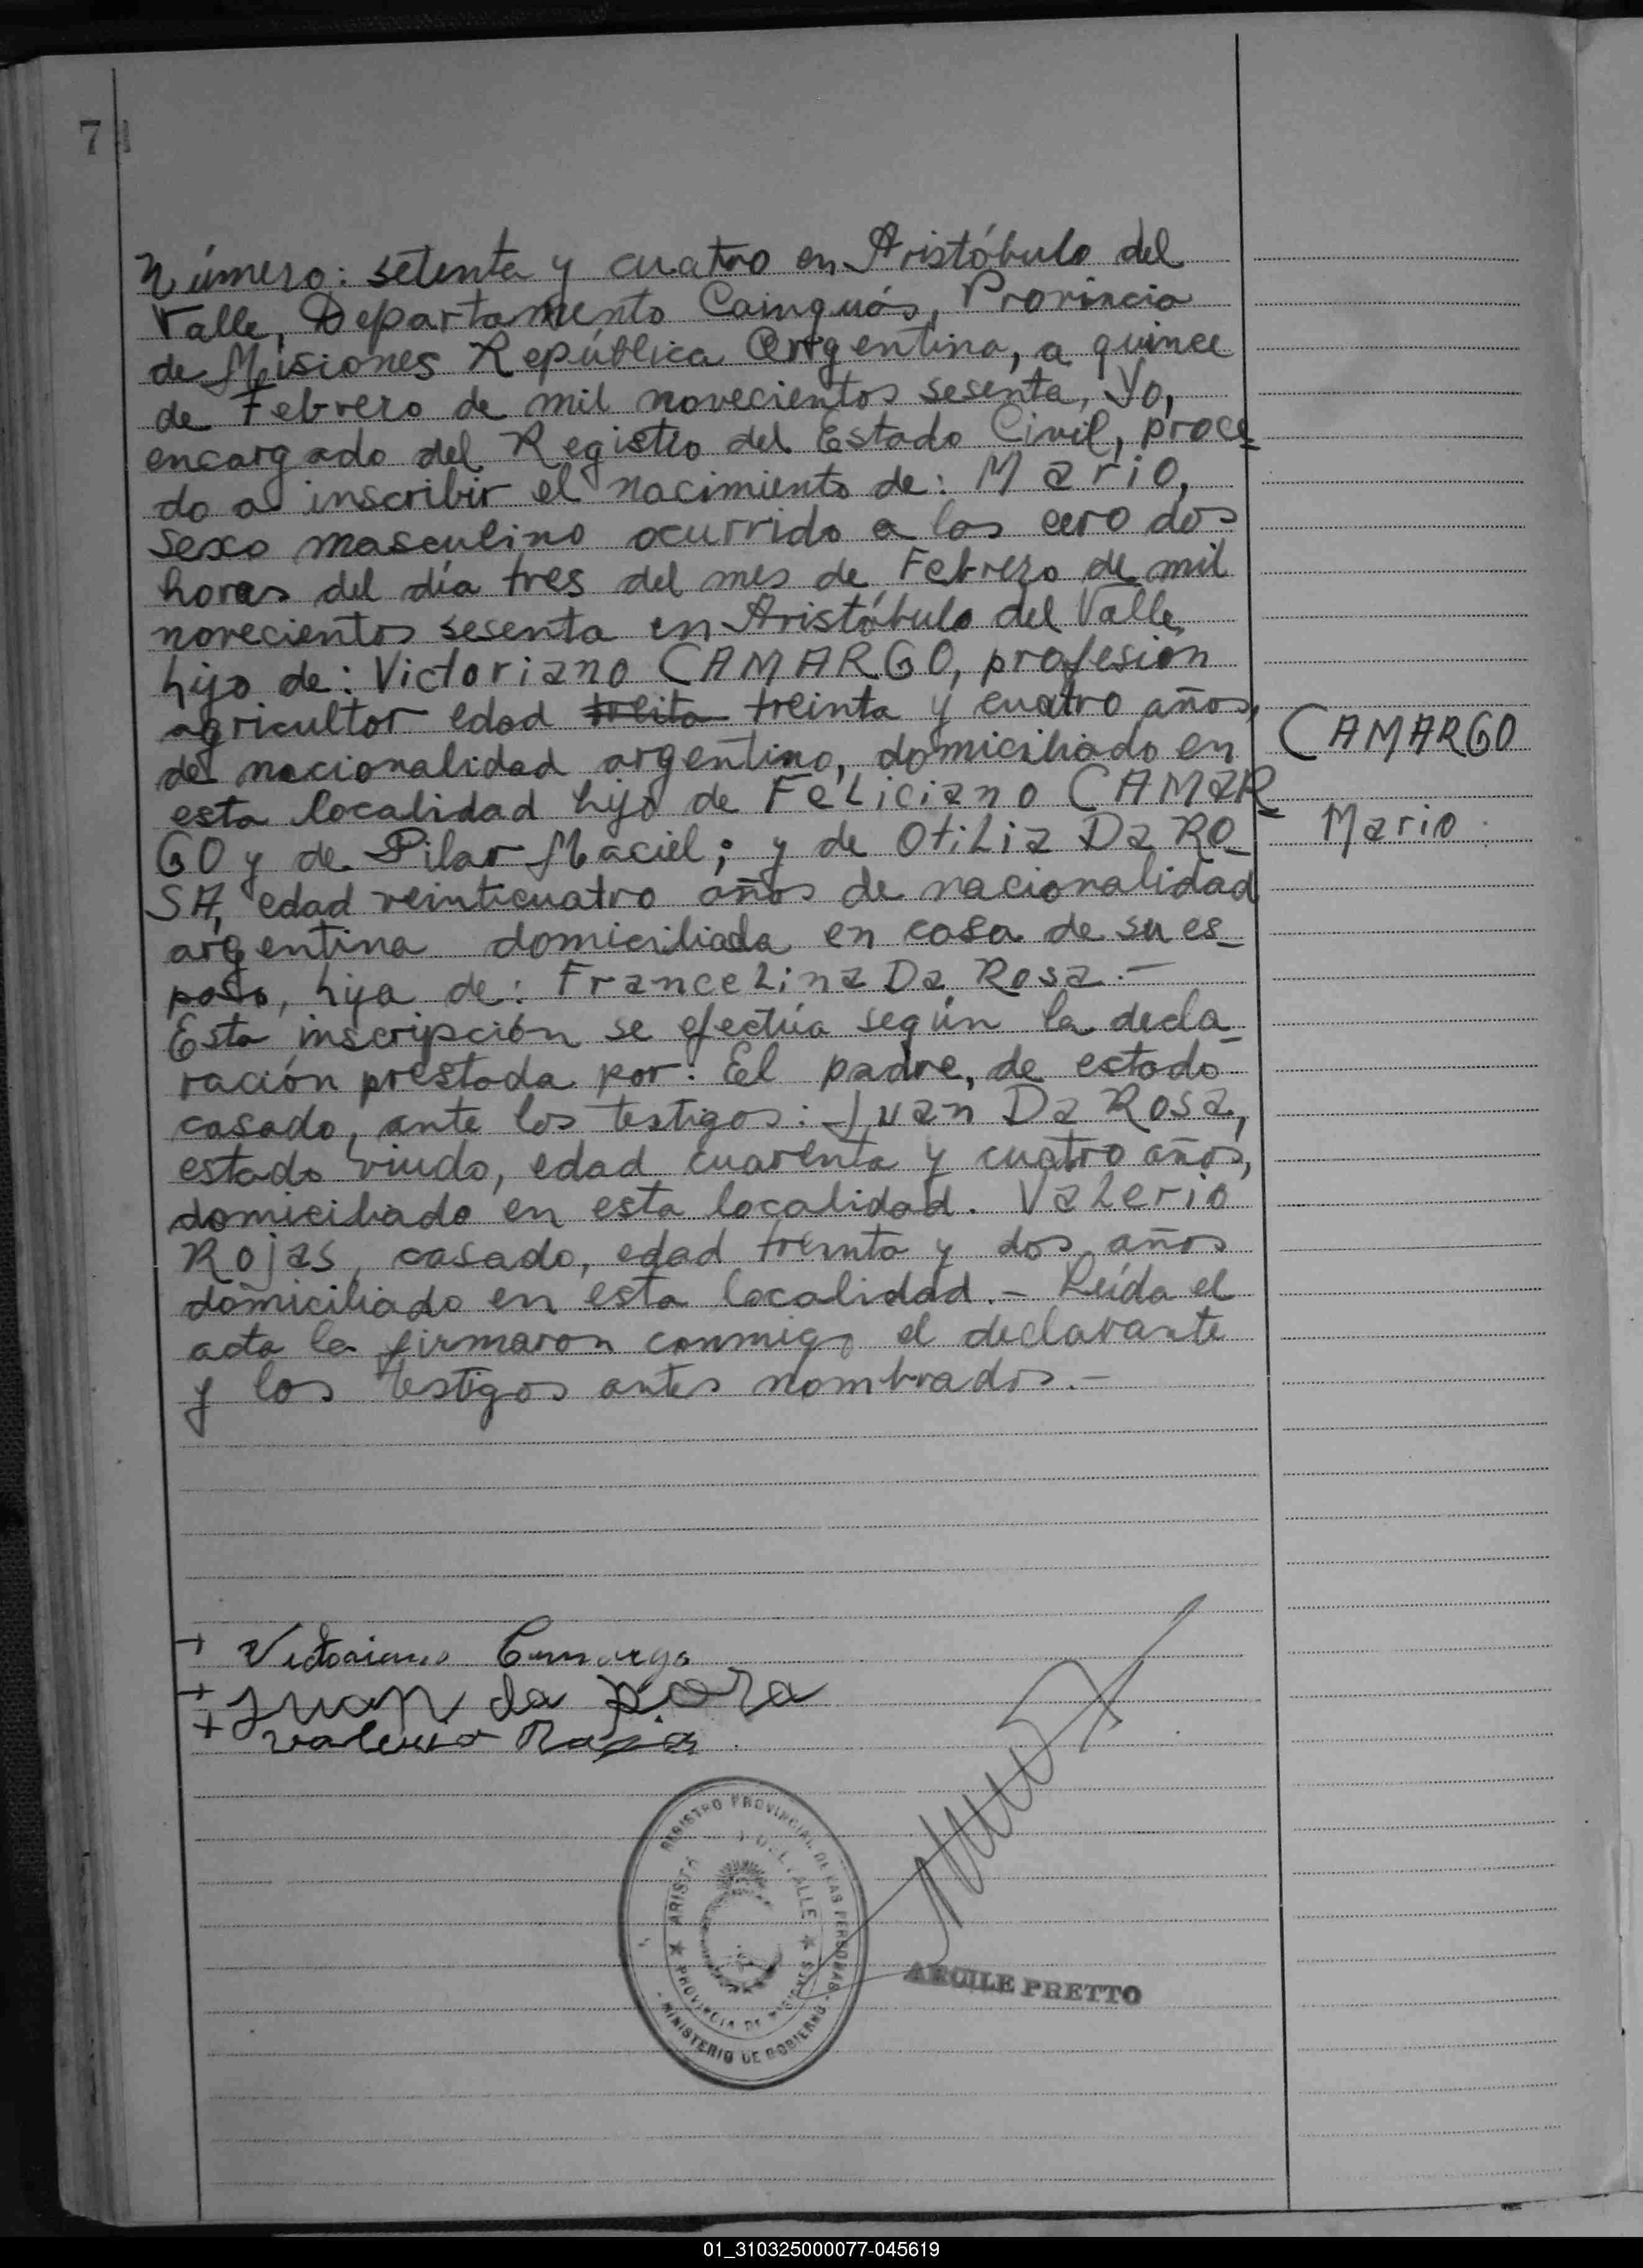 7
Número: setenta y cuatro en Aristóbulo del
Valle, Departamento Cainguás, Provincia
de Misiones República Argentina, a quince
de Febrero de mil novecientos sesenta, Yo,
encargado del Registro del Estado Civil, proce-
do a inscribir el nacimiento de: Mario,
sexo masculino ocurrido a las cero dos
horas del día tres del mes de Febrero de mil
novecientos sesenta en Aristóbulo del Valle,
hijo de: Victoriano CAMARGO, profesión
agricultor edad treita treinta y cuatro años,
de nacionalidad argentino, domiciliado en
esta localidad hijo de Feliciano CAMAR
GO y de Pilar Maciel; y de Otilia Da RO-
SA, edad veinticuatro años de nacionalidad
argentina domiciliada en casa de su es-
poso, hija de: Francelina Da Rosa.-
Esta inscripción se efectúa según la decla-
ración prestada por: El padre, de estado
casado, ante los testigos: Juan Da Rosa,
estado viudo, edad cuarenta y cuatro años,
domiciliado en esta localidad. Valerio
Rojas, casado, edad treinta y dos años
domiciliado en esta localidad.- Leída el
acta la firmaron conmigo el declarante
y los testigos antes nombrados.-
CAMARGO
Mario
+ Victoriano Camargo
+ Juan da Roza
+ Valerio
REGISTRO PROVINCIAL DE LAS PERSONAS
MINISTERIO DE GOBIERNO
DEL VALLE
PROVINCIA DE MISIONES
PRETTO
01_310325000077-045619